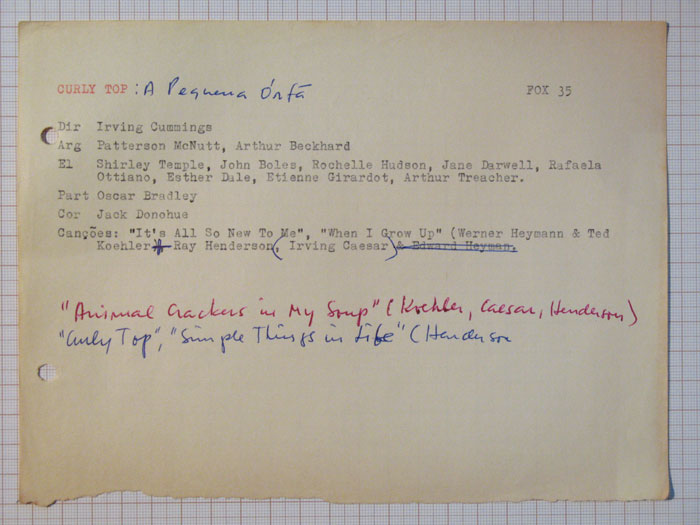 CURLY TOP : A Pequena Órfã FOX 35
Dir Irving Cummings
Arg Patterson McNutt, Arthur Beckhard
El Shirley Temple, John Boles, Rochelle Hudson, Jane Darwell, Rafaela
Ottiano, Esther Dale, Etienne Girardot, Arthur Treacher.
Part Oscar Bradley
Cor Jack Donohue
Canções: "It's All So New To Me", "When I Grow Up" (Werner Heymann & Ted
Koehler Ray Henderson ( Irving Caesar ) & Edward Heyman.
"Animal Crackers in My Soup" (Koehler, Caesar, Henderson)
"Curly Top", "Simple Things in Life" (Henderson